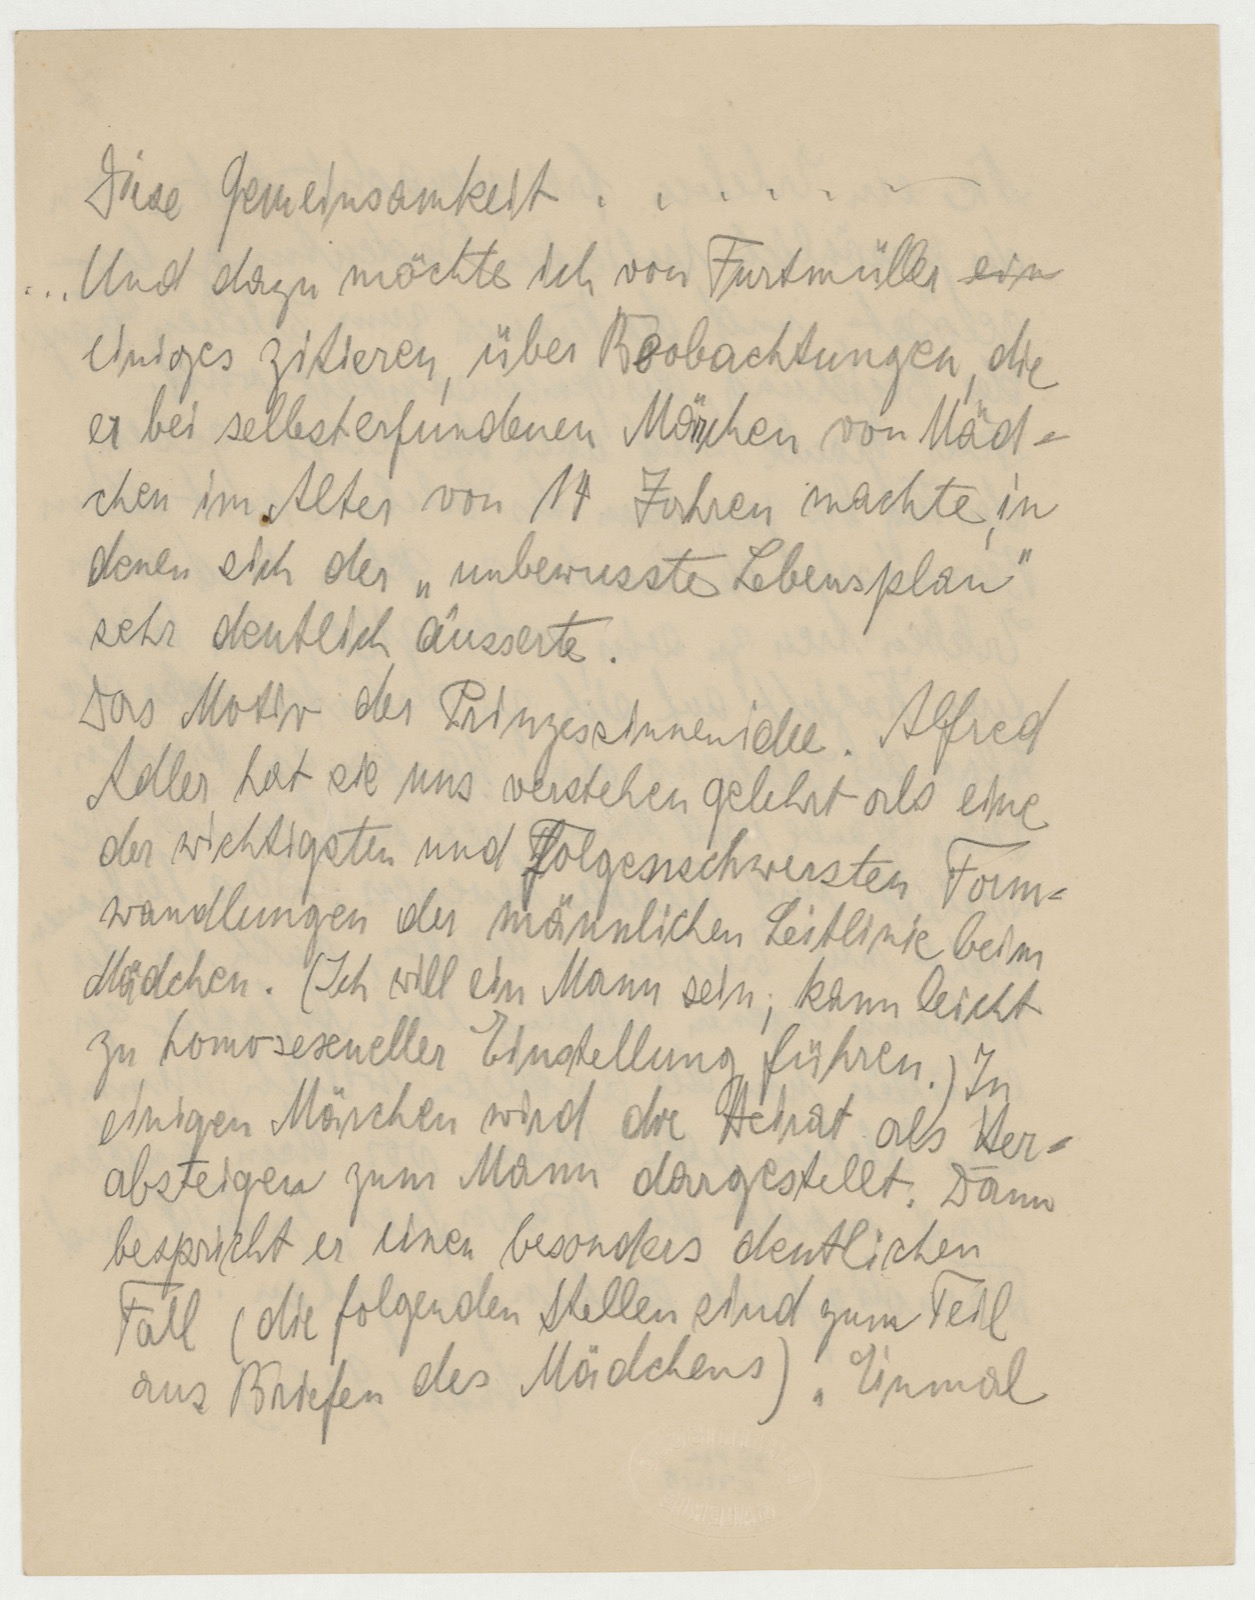 Diese Gemeinsamkeit . . . . . .
...Und dazu möchte ich von Furtmüller ein
einiges zitieren, über Beobachtungen, die
er bei selbsterfundenen Märchen von Mäd=
chen im Alter von 14 Jahren machte, in
denen sich der „unbewusste Lebensplan"
sehr deutlich äusserte.
Das Motiv der Prinzessinnenidee. Alfred
Adler hat sie uns verstehen gelehrt als eine
der wichtigsten und folgenschwersten Form=
wandlungen der männlichen Leitlinie beim
Mädchen. (Ich will ein Mann sein; kann leicht
zu homosexueller Einstellung führen.) In
einigen Märchen wird die Heirat als Her=
absteigen zum Mann dargestellt. Dann
bespricht er einen besonders deutlichen
Fall (die folgenden Stellen sind zum Teil
aus Briefen des Mädchens). Einmal